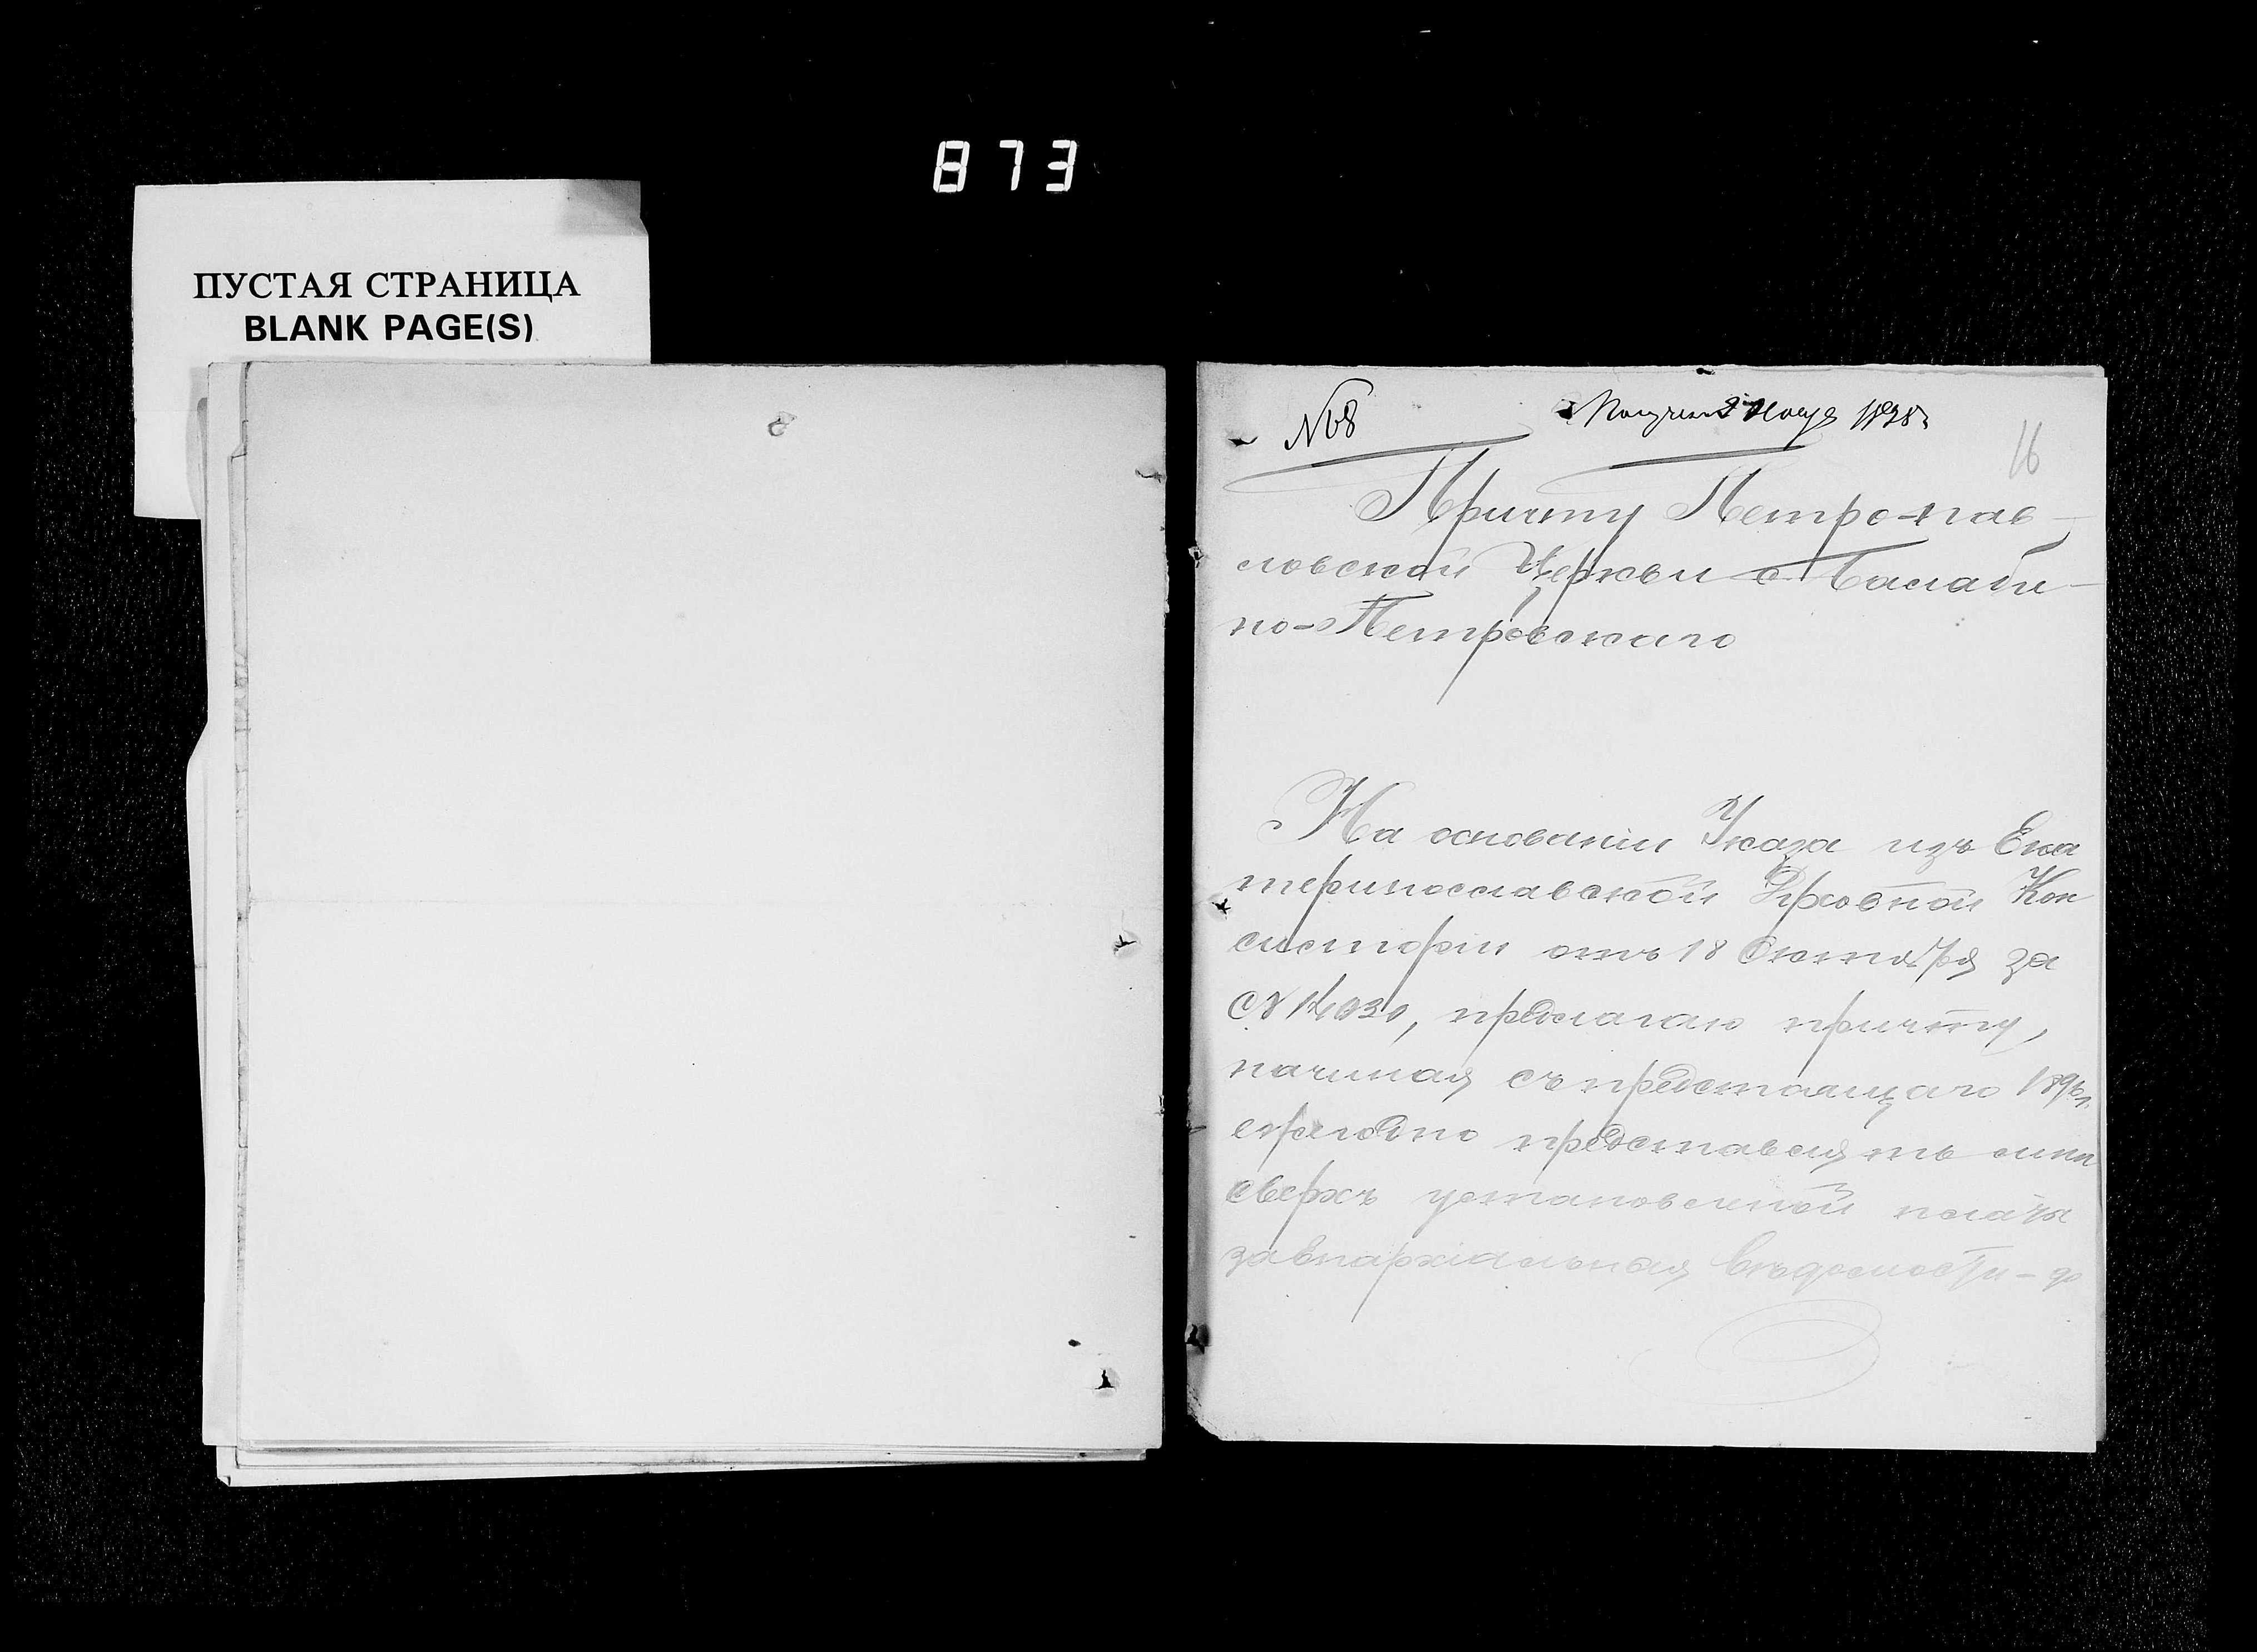 873
ПУСТАЯ СТРАНИЦА
BLANK PAGE(S)
№68
16
Причту Петро-пав-
ловской Церкви с. Балаби-
но-Петровскаго
На основаніи Указа изъ Ека
теринославской Духовной Кон
систоріи отъ 18 Октября за
№ предлагаю причту,
начиная съ предстоящаго
ежегодно представлять мнѣ
сверхъ установленной платы
за Епархіальныя Вѣдомости - по